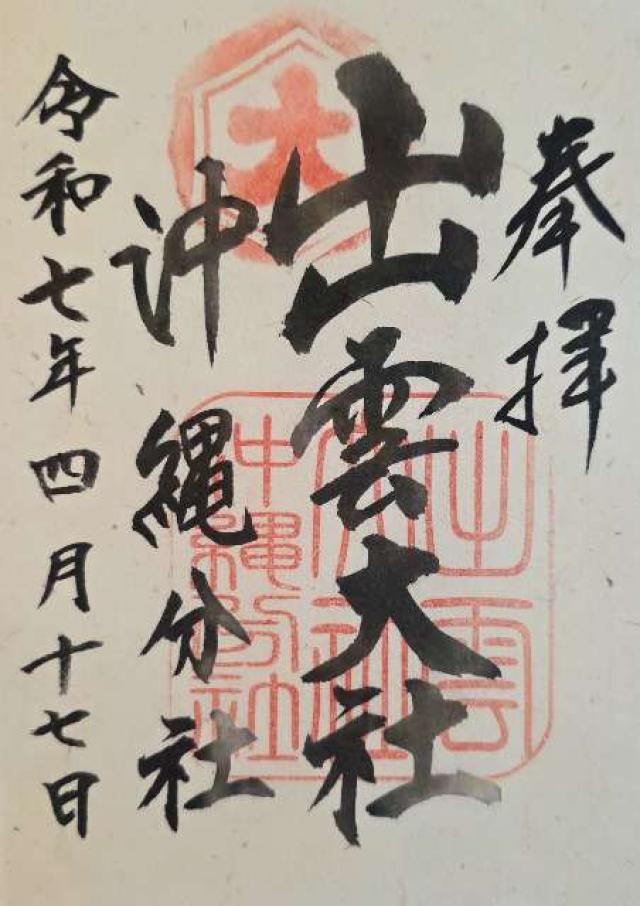 奉拝
出雲大社
沖縄分社
令和七年四月十七日
大
出雲
大社
沖縄分社